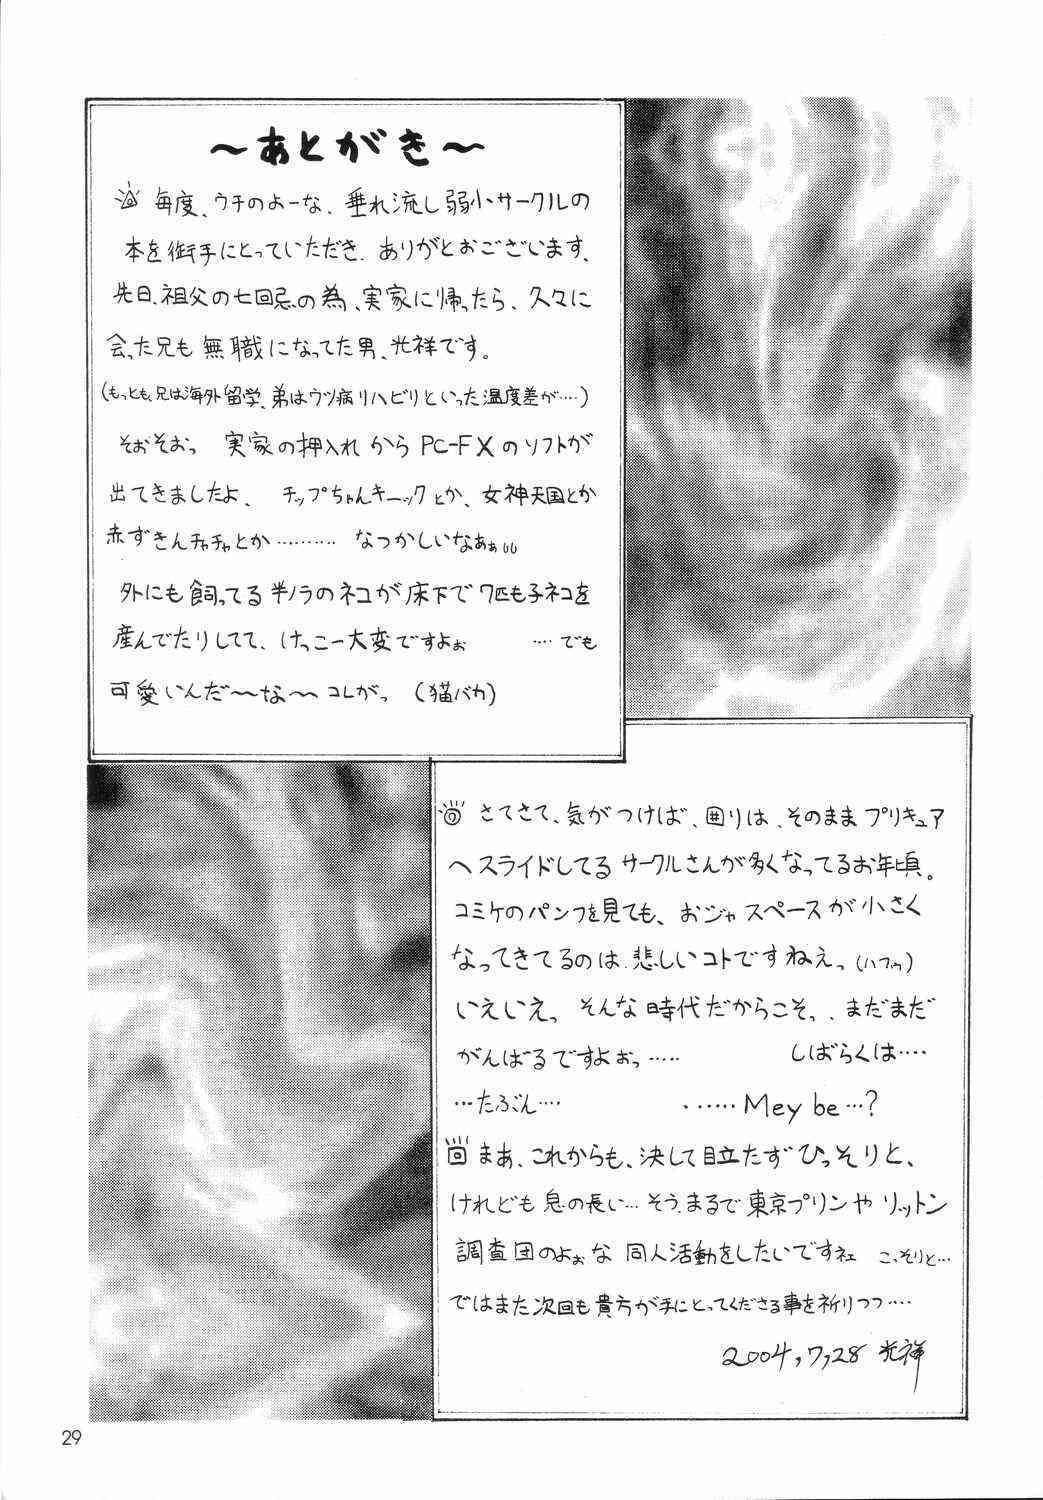 ～あとがき～
毎度、ウチのよーな、垂れ流し弱小サークルの
本を御手にとっていただき、ありがとおございます、
先日、祖父の七回忌の為、実家に帰ったら、久々に
会った兄も無職になってた男、光祥です。
(もっとも、兄は海外留学、弟はウツ病リハビリといった温度差が‥‥)
そおそおっ 実家の押入れからPC-FXのソフトが
出てきましたよ、 チップちゃんキーックとか、女神天国とか
赤ずきんチャチャとか………… なつかしいなあぁぃぃ
外にも飼ってる半ノラのネコが床下で7匹も子ネコを
産んでたりしてて、けっこー大変ですよぉ ‥‥でも
可愛いんだ〜な〜コレがっ (猫バカ)
さてさて、気がつけば、囲りは、そのままプリキュア
へスライドしてるサークルさんが多くなってるお年頃。
コミケのパンフを見ても、おジャスペースが小さく
なってきてるのは、悲しいコトですねえっ(ハフゥ)
いえいえっ そんな時代だからこそっ、まだまだ
がんばるですよぉっ‥‥‥ しばらくは‥‥
‥‥たぶん‥‥ ‥‥‥‥Mey be‥‥?
まあ、これからも、決して目立たずひっそりと、
けれども息の長い…そう、まるで東京プリンやリットン
調査団のよぉな 同人活動をしたいですネェ こっそりと…
ではまた次回も貴方が手にとってくださる事を祈りつつ‥‥
2004,7,28 光祥
29